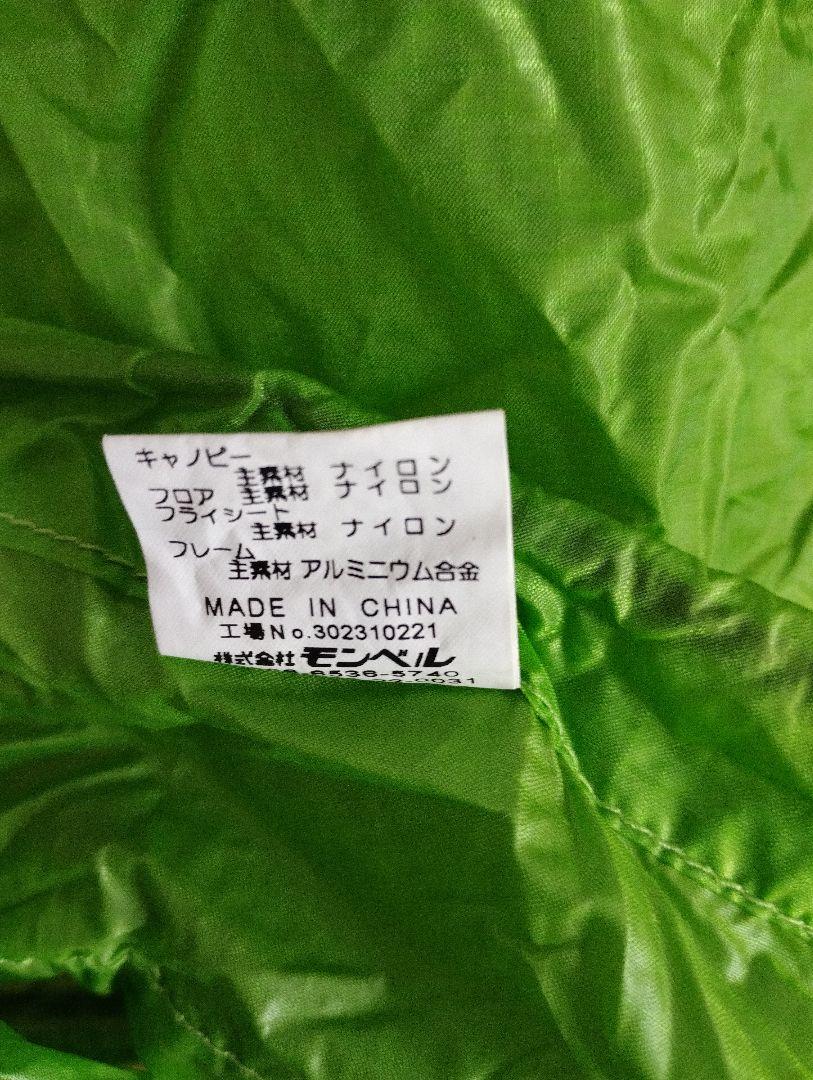 キャノピー
主素材 ナイロン
フロア 主素材 ナイロン
フライシート
主素材 ナイロン
フレーム
主素材 アルミニウム合金
MADE IN CHINA
工場No.302310221
株式会社 モンベル
6536-5740
0031